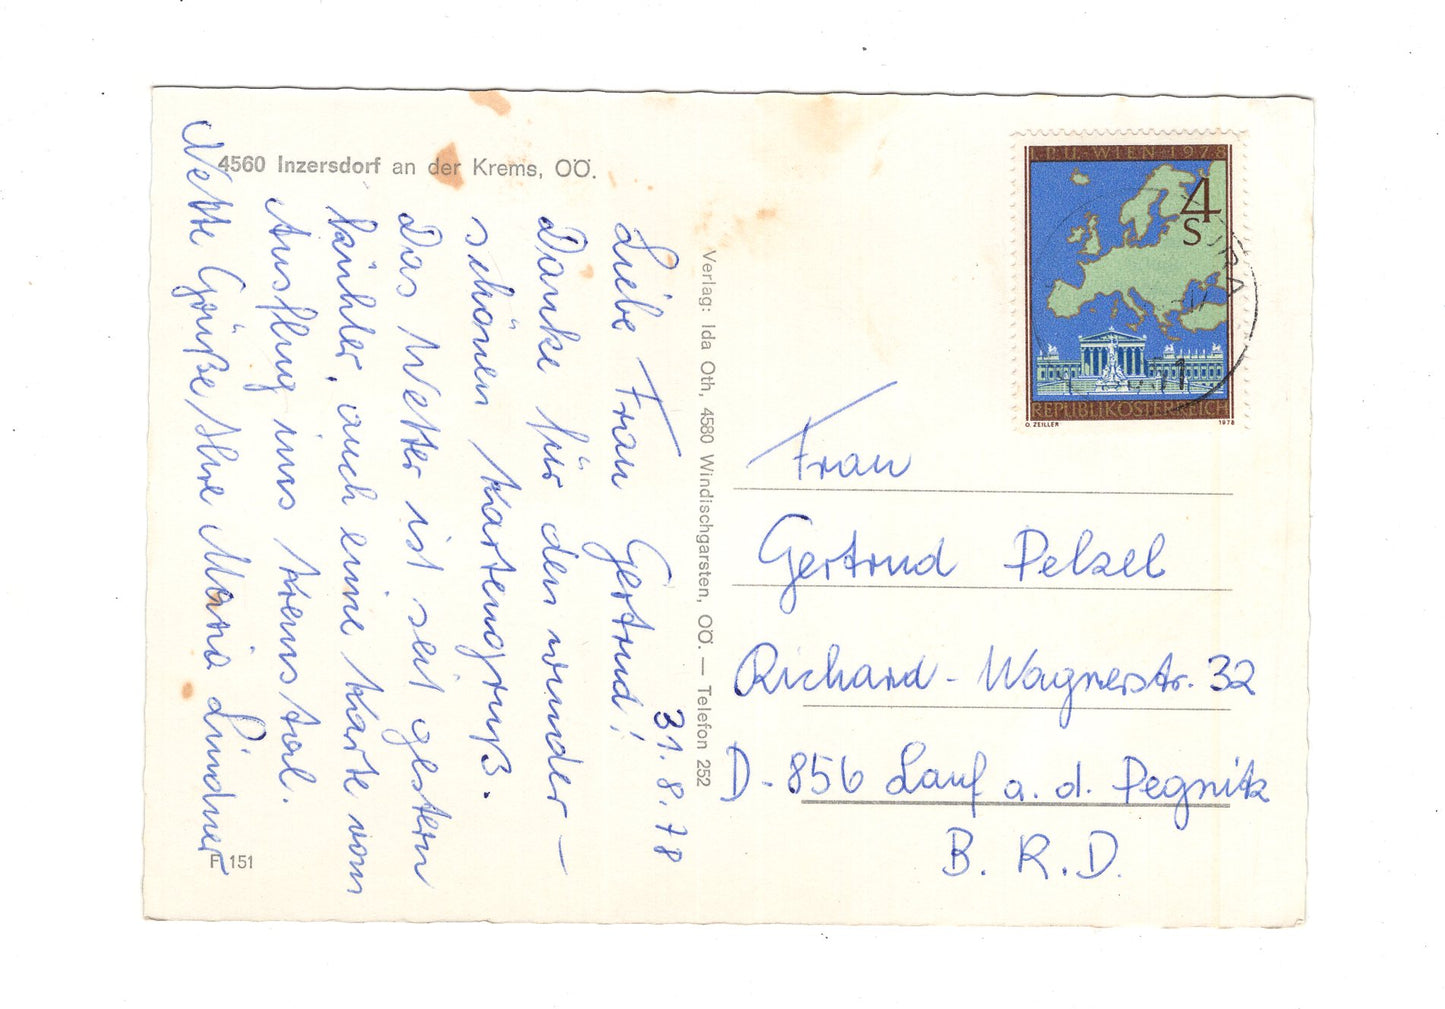 4560 Inzersdorf an der Krems, OÖ.
31.8.78
Liebe Frau Gertrud!
Danke für den wunder-
schönen Kartengruß.
Das Wetter ist seit gestern
auch eine Karte vom
Ausflug ins Kremstal.
Nette Grüße, Ihre Maria Lindner
F 151
Verlag: Ida Oth, 4580 Windischgarsten, OÖ. — Telefon 252
I.P.U. WIEN 1978
4
S
REPUBLIK ÖSTERREICH
O. ZEILLER 1978
Frau
Gertrud Pelzel
Richard-Wagnerstr. 32
D-856 Lauf a. d. Pegnitz
B. R. D.